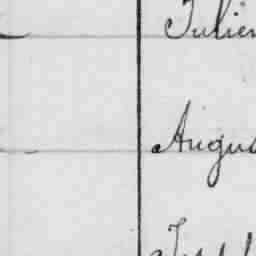 Julien
Augus